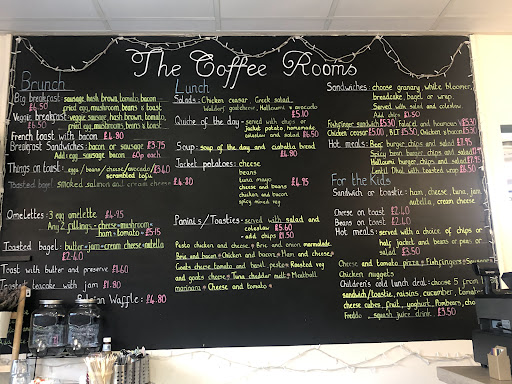 The Coffee Rooms
Brunch
Big breakfast: sausage, hash brown, tomato, bacon
£6.50 fried egg, mushroom, beans & toast
Veggie breakfast: veggie sausage, hash brown, tomato,
£6.50 fried egg, mushroom, beans & toast
French toast with bacon £4.80
Breakfast Sandwiches: bacon or sausage £3.75
Add: egg, sausage, bacon 60p each
Things on toast: eggs / beans / cheese/avocado £3.40
scrambled tofu
Toasted bagel smoked salmon and cream cheese £4.80
Omelettes: 3 egg omelette £4.75
Any 2 fillings - cheese - mushroom -
ham - tomato £5.75
Toasted bagel: butter - jam - cream cheese - nutella
£2.40
Toast with butter and preserve £1.60
Toasted teacake with jam £1.80
Waffle: £4.80
Lunch
Salads: Chicken ceasar, Greek salad,
Waldorf goats cheese, Halloumi & avocado
Quiche of the day - served with chips or
Jacket potato, homemade
coleslaw and salad £6.50
Soup: soup of the day and ciabatta bread
£4.80
Jacket potatoes: cheese
beans
tuna mayo
cheese and beans
chicken and bacon
spicy mixed veg
£4.95
Paninis / Toasties: served with salad and
coleslaw £5.60
- add chips £1.50
Pesto chicken and cheese Brie and onion marmalade
Brie and bacon Chicken and bacon Ham and cheese
Goats cheese tomato and basil pesto Roasted veg
and goats cheese Tuna cheddar melt Meatball
marinara Cheese and tomato
Sandwiches: choose granary, white bloomer,
breadcake, bagel or wrap
Served with salad and coleslaw
Add chips £1.50
Fishfinger sandwich £5.50 Falafel and houmous £5.50
Chicken ceasar £5.00, BLT £5.50, Chicken & bacon £5.50
Hot meals: Beef burger, chips and salad £7.95
Spicy bean burger, chips and salad
Halloumi burger, chips and salad £7.95
Lentil Dhal with toasted wrap £6.50
For the Kids
Sandwich or toastie: ham, cheese, tuna, jam,
nutella, cream cheese
Cheese on toast £2.40
Beans on toast £2.40
Hot meals: served with a choice of chips or
half jacket and beans or peas or
salad £3.50
Cheese and tomato pizza Fishfingers
Chicken nuggets
Children's cold lunch deal: choose 5 from
sandwich/toastie, raisins, cucumber, tomato
cheese cubes, fruit, yoghurt, Pombears,
Freddo, squash juice drink £3.50